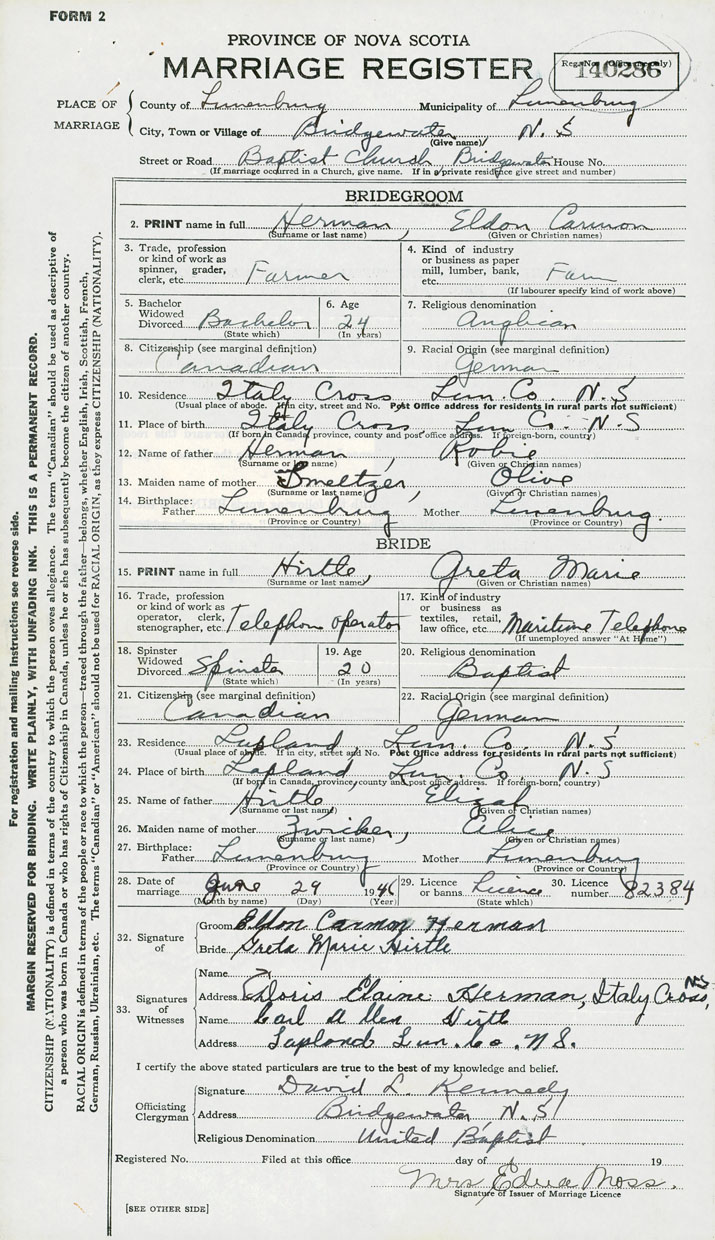 FORM 2
PROVINCE OF NOVA SCOTIA
MARRIAGE REGISTER
Reg. No. (Office use only)
140286
PLACE OF MARRIAGE
County of Lunenburg Municipality of Lunenburg
City, Town or Village of Bridgewater N.S
(Give name)
Street or Road Baptist Church, Bridgewater House No.
(If marriage occurred in a Church, give name. If in a private residence give street and number)
BRIDEGROOM
2. PRINT name in full Herman, Eldon Carmon
(Surname or last name) (Given or Christian names)
3. Trade, profession or kind of work as spinner, grader, clerk, etc. Farmer
4. Kind of industry or business as paper mill, lumber, bank, etc. Farm
(If labourer specify kind of work above)
5. Bachelor Widowed Divorced Bachelor
(State which)
6. Age 24
(In years)
7. Religious denomination Anglican
8. Citizenship (see marginal definition) Canadian
9. Racial Origin (see marginal definition) German
10. Residence Italy Cross Lun. Co. N.S
(Usual place of abode. If in city, street and No. Post Office address for residents in rural parts not sufficient)
11. Place of birth Italy Cross Lun Co. N.S
(If born in Canada, province, county and post office address. If foreign-born, country)
12. Name of father Herman, Robie
(Surname or last name) (Given or Christian names)
13. Maiden name of mother Smeltzer, Olive
(Surname or last name) (Given or Christian names)
14. Birthplace: Father Lunenburg Mother Lunenburg.
(Province or Country) (Province or Country)
BRIDE
15. PRINT name in full Hirtle, Greta Marie
(Surname or last name) (Given or Christian names)
16. Trade, profession or kind of work as operator, clerk, stenographer, etc. Telephon operator
17. Kind of industry or business as textiles, retail, law office, etc. Maritime Telephone
(If unemployed answer "At Home")
18. Spinster Widowed Divorced Spinster
(State which)
19. Age 20
(In years)
20. Religious denomination Baptist
21. Citizenship (see marginal definition) Canadian
22. Racial Origin (see marginal definition) German
23. Residence Lapland, Lun. Co. N.S
(Usual place of abode. If in city, street and No. Post Office address for residents in rural parts not sufficient)
24. Place of birth Lapland Lun. Co. N.S
(If born in Canada, province, county and post office address. If foreign-born, country)
25. Name of father Hirtle Elizah
(Surname or last name) (Given or Christian names)
26. Maiden name of mother Zwicker, Alice
(Surname or last name) (Given or Christian names)
27. Birthplace: Father Lunenburg Mother Lunenburg
(Province or Country) (Province or Country)
28. Date of marriage June 29 1946
(Month by name) (Day) (Year)
29. Licence or banns Licence
(State which)
30. Licence number 82384
32. Signature of
Groom Eldon Carmon Herman
Bride Greta Marie Hirtle
33. Signatures of Witnesses
Name
Address Doris Elaine Herman, Italy Cross, NS
Name Carl Allen Hirtle
Address Lapland Lun. Co. N.S.
I certify the above stated particulars are true to the best of my knowledge and belief.
Officiating Clergyman
Signature David L. Kennedy
Address Bridgewater N.S
Religious Denomination United Baptist
Registered No. Filed at this office day of 19
Mrs Edna Moss.
Signature of Issuer of Marriage Licence
[SEE OTHER SIDE]
For registration and mailing instructions see reverse side.
MARGIN RESERVED FOR BINDING. WRITE PLAINLY, WITH UNFADING INK. THIS IS A PERMANENT RECORD.
CITIZENSHIP (NATIONALITY) is defined in terms of the country to which the person owes allegiance. The term "Canadian" should be used as descriptive of
a person who was born in Canada or who has rights of Citizenship in Canada, unless he or she has subsequently become the citizen of another country.
RACIAL ORIGIN is defined in terms of the people or race to which the person—traced through the father—belongs, whether English, Irish, Scottish, French,
German, Russian, Ukrainian, etc. The terms "Canadian" or "American" should not be used for RACIAL ORIGIN, as they express CITIZENSHIP (NATIONALITY).